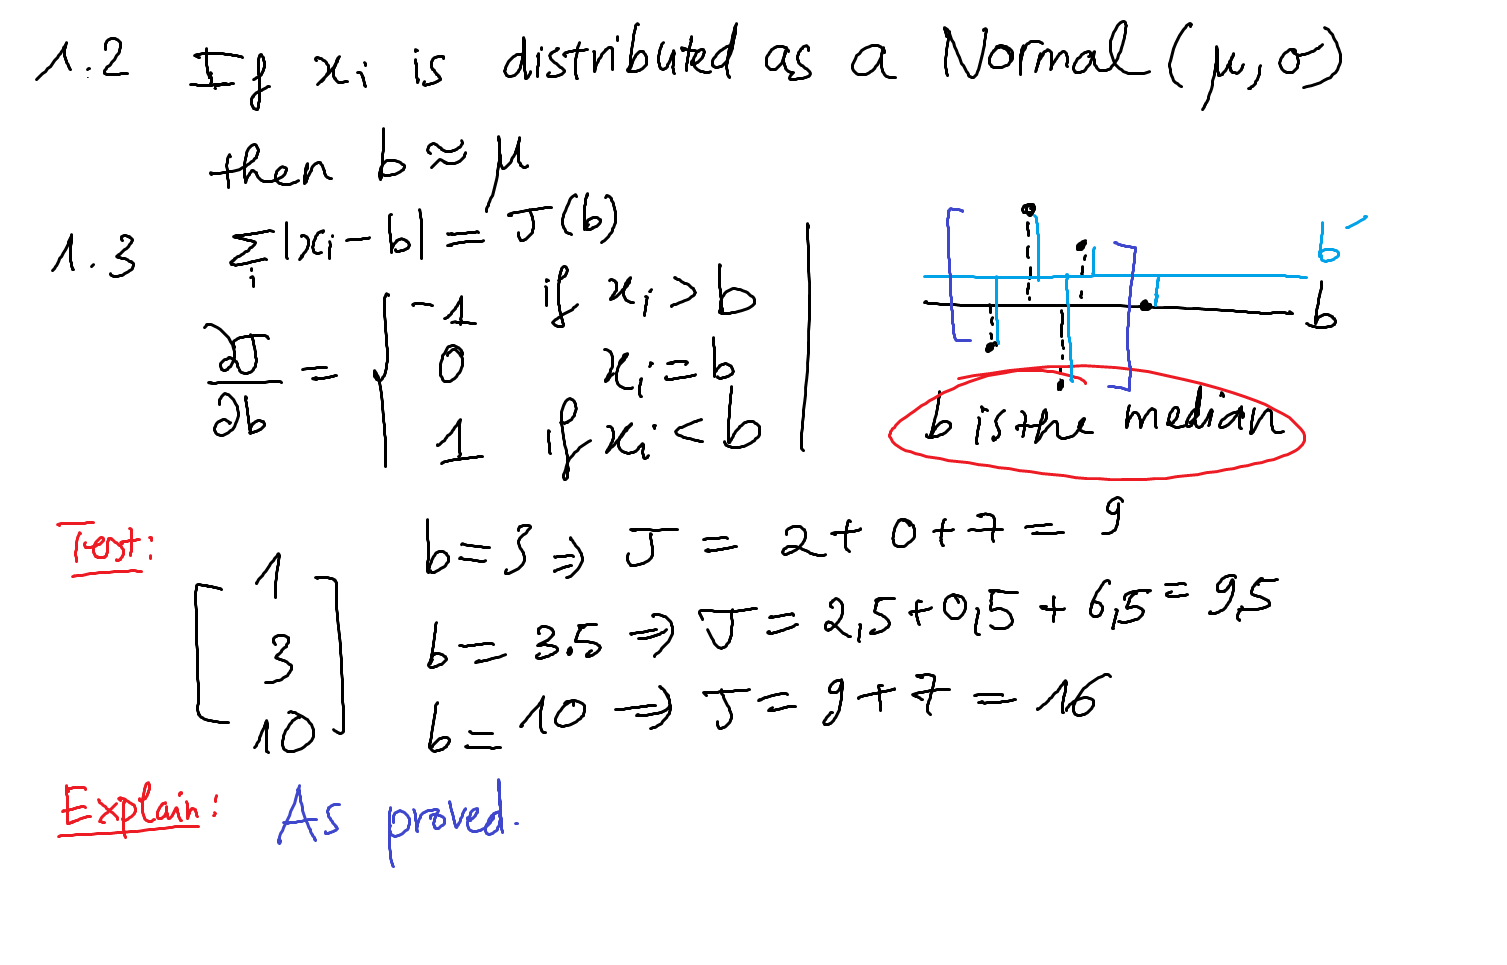 1.2 If xᵢ is distributed as a Normal (μ, σ)
then b ≈ μ
1.3 Σᵢ |xᵢ - b| = J(b)
∂J/∂b = { -1 if xᵢ > b
0 xᵢ = b
1 if xᵢ < b
b′
b
b is the median
Test:
[1 3 10]
b = 3 ⇒ J = 2 + 0 + 7 = 9
b = 3.5 ⇒ J = 2,5 + 0,5 + 6,5 = 9,5
b = 10 ⇒ J = 9 + 7 = 16
Explain: As proved.